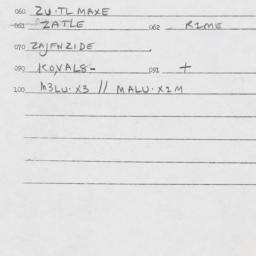 060 ZU·TL MAXE
061 ZATLE 062 RIME
070 ZAJENZIDE
090 KO,VALS- 091 +
100 M3LU·X3 // MALU·X2M